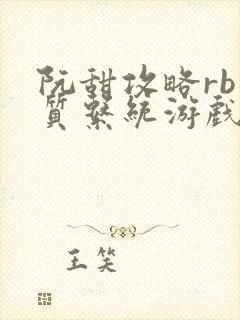 阮甜攻略rb
質繫統游戲
王笑